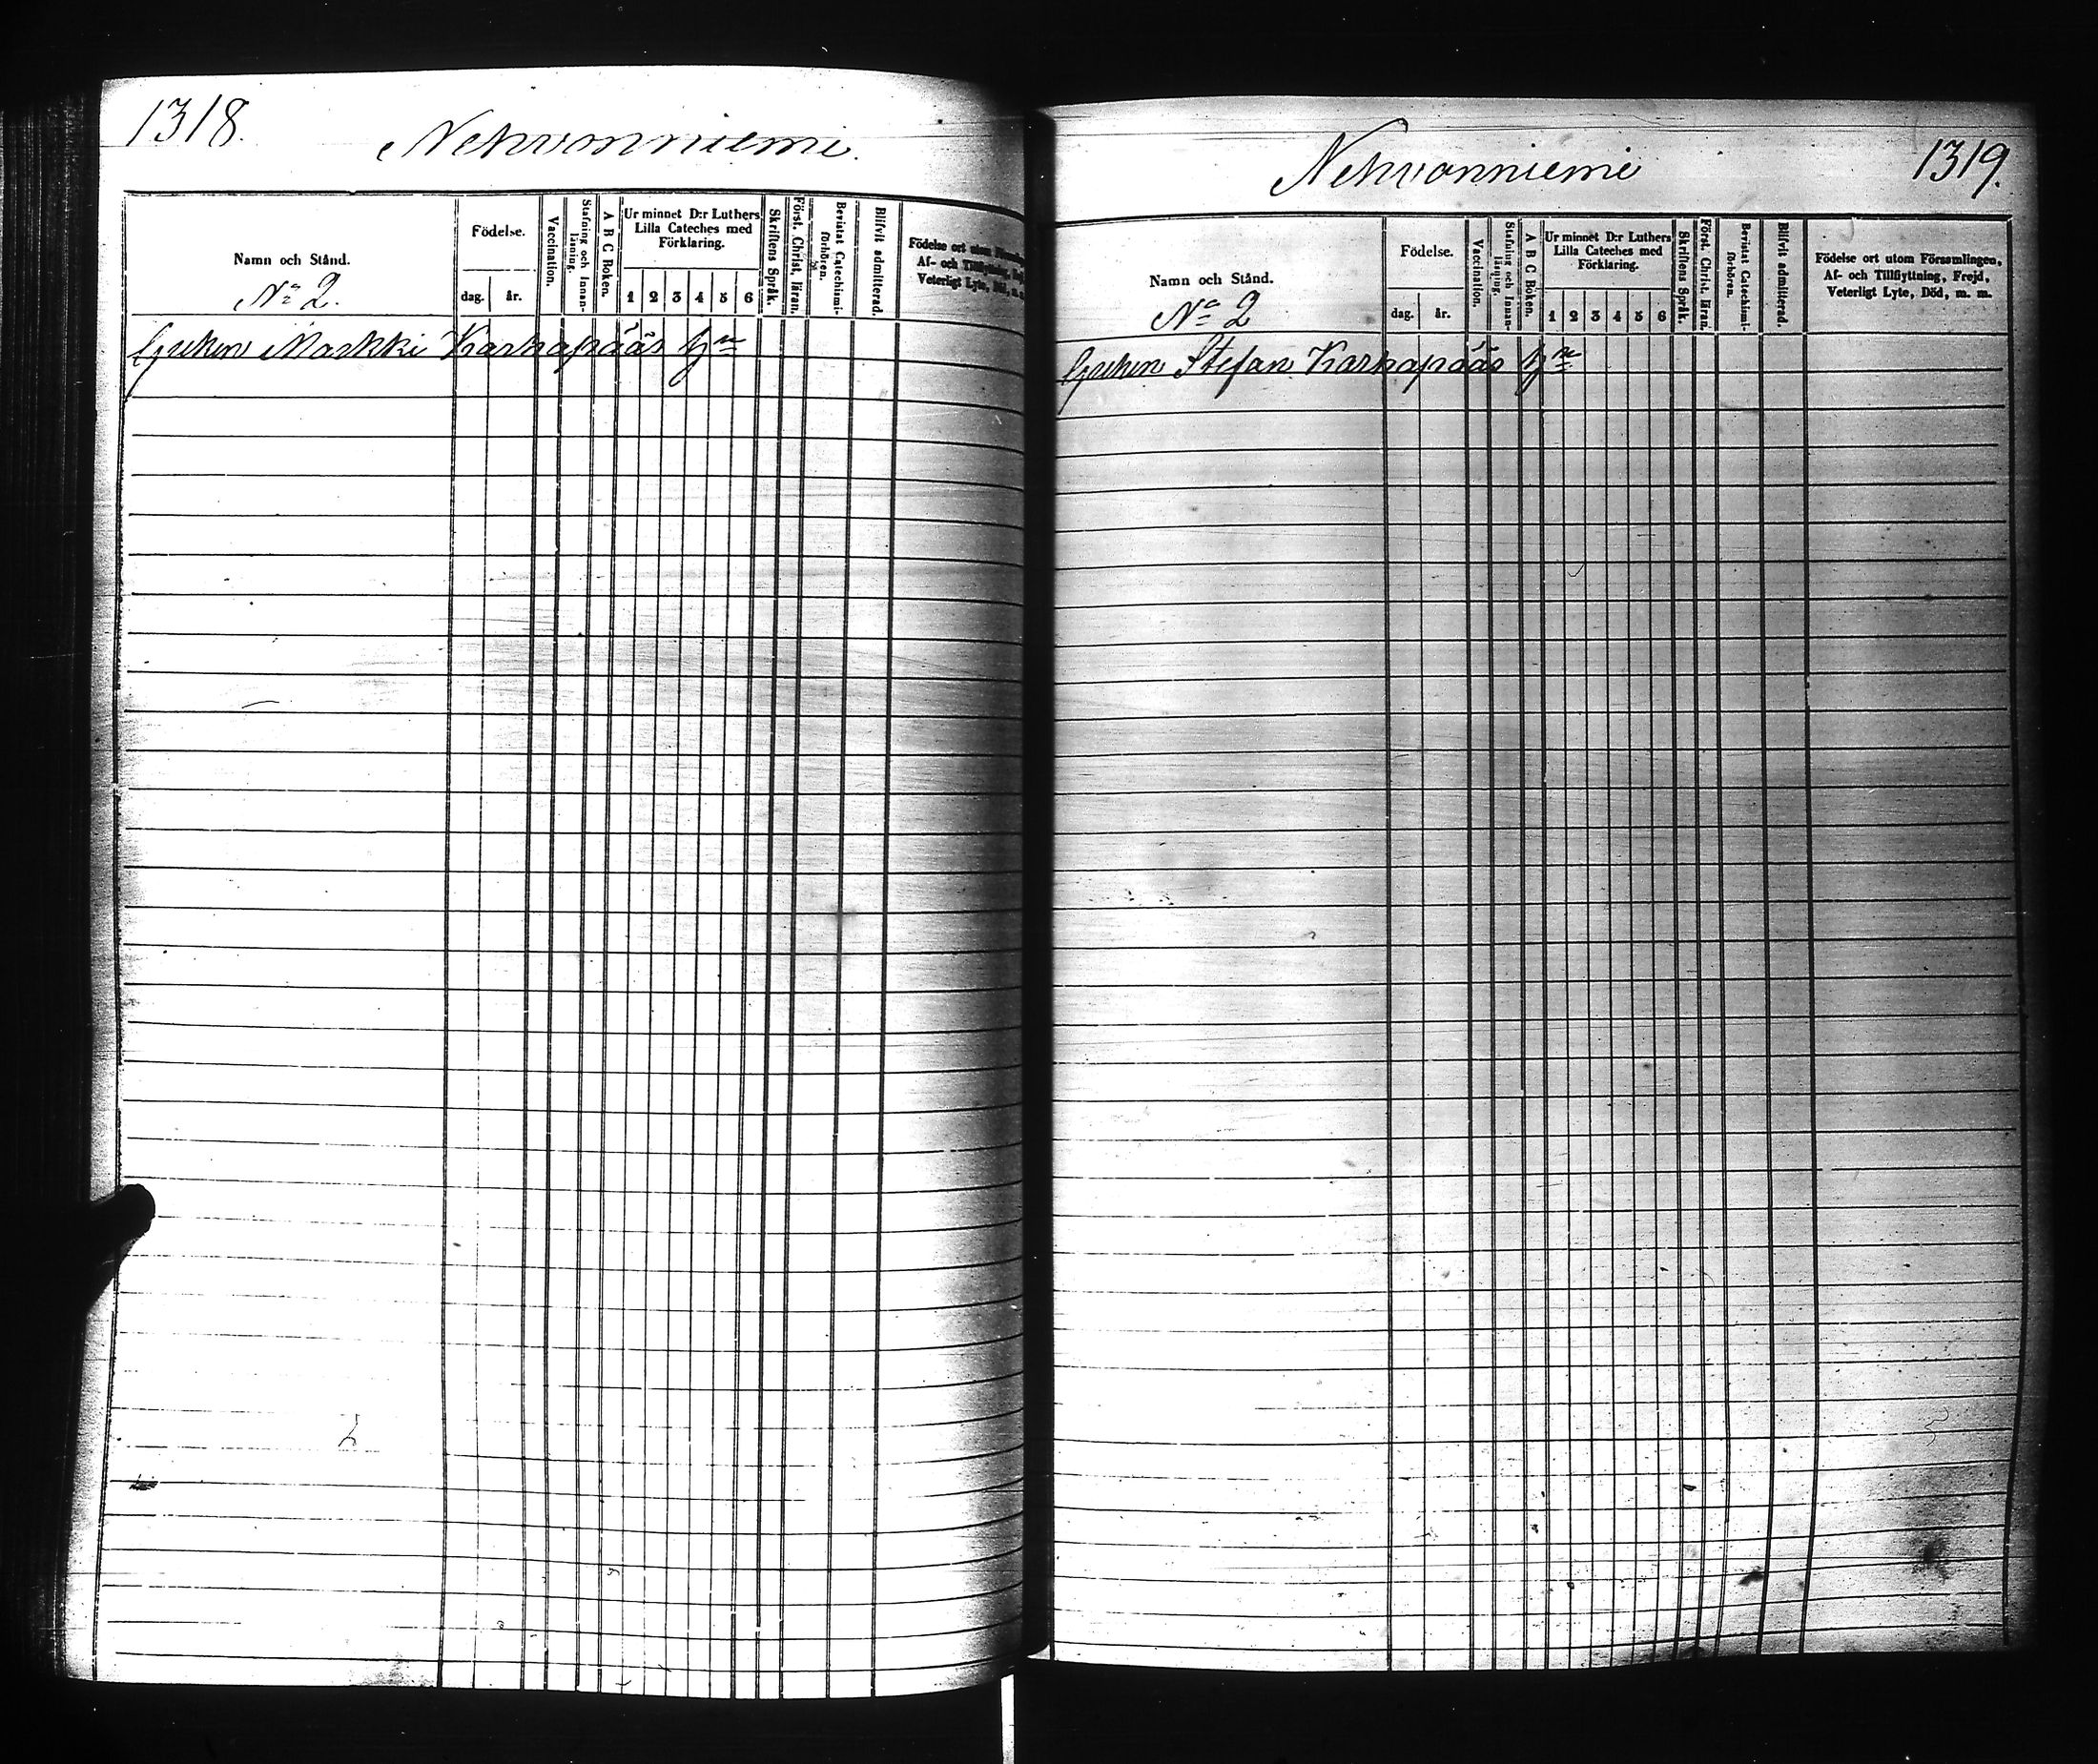 1318.
Nehvonniemi.
Namn och Stånd.
No 2.
Födelse.
dag. år.
Vaccination.
Stafning och Innan-
läsning.
A B C Boken.
Ur minnet D:r Luthers
Lilla Cateches med
Förklaring.
1 2 3 4 5 6
Skriftens Språk.
Först. Christ. läran.
Bevistat Catechismi-
förhören.
Blifvit admitterad.
Födelse ort utom
Af- och
Veterligt Lyte,
Greken Markki Karhapääs
Nehvonniemi
1319.
Namn och Stånd.
No 2
Födelse.
dag. år.
Vaccination.
Stafning och Innan-
läsning.
A B C Boken.
Ur minnet D:r Luthers
Lilla Cateches med
Förklaring.
1 2 3 4 5 6
Skriftens Språk.
Först. Christ. läran.
Bevistat Catechismi-
förhören.
Blifvit admitterad.
Födelse ort utom Församlingen,
Af- och Tillflyttning, Frejd,
Veterligt Lyte, Död, m. m.
Greken Stefan Karhapääs